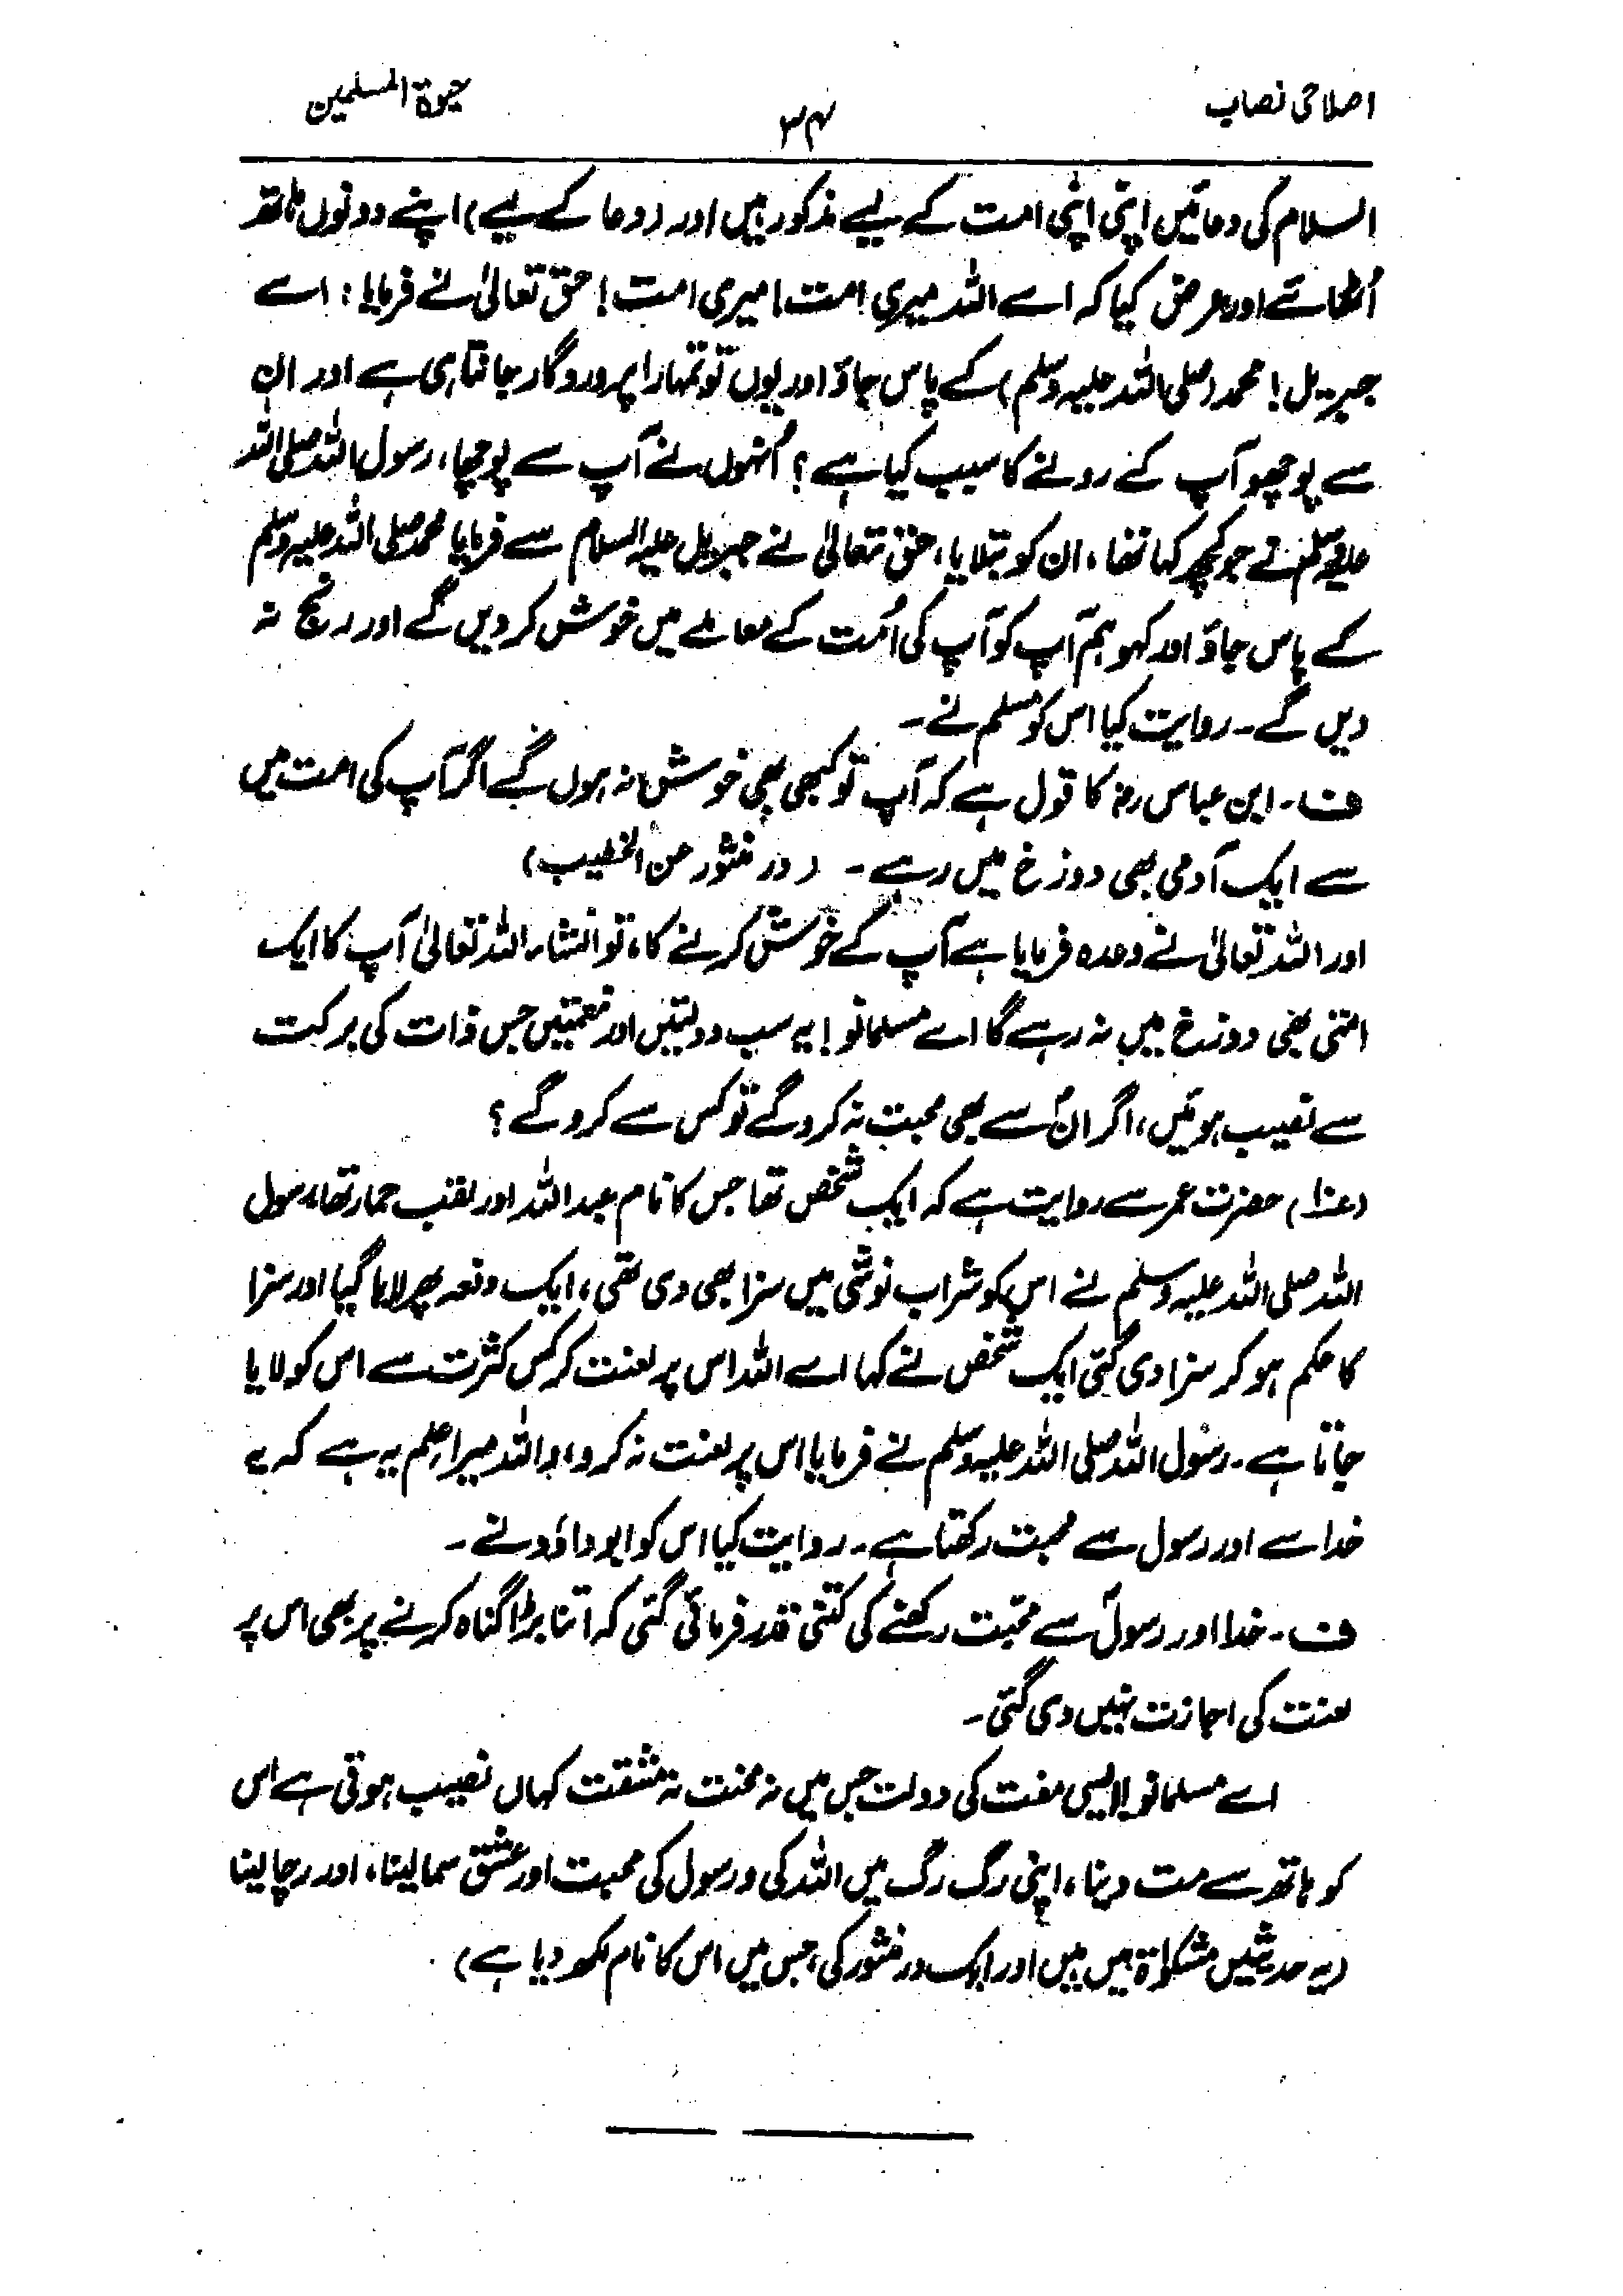 اصلاحی نصاب
۳۴
حیوۃ المسلمین
السلام کی دعائیں اپنی اپنی امت کے لیے مذکور ہیں اور (دعا کے لیے) اپنے دونوں ہاتھ
اُٹھائے اور عرض کیا کہ اے اللہ میری امت! میری امت! حق تعالیٰ نے فرمایا: اے
جبریل! محمد (صلی اللہ علیہ وسلم) کے پاس جاؤ اور یوں تو تمہارا پروردگار جانتا ہی ہے اور ان
سے پوچھو آپ کے رونے کا سبب کیا ہے؟ اُنہوں نے آپ سے پوچھا، رسول اللہ صلی اللہ
علیہ وسلم نے جو کچھ کہا تھا، ان کو بتلایا، حق تعالیٰ نے جبریل علیہ السلام سے فرمایا محمد صلی اللہ علیہ وسلم
کے پاس جاؤ اور کہو ہم آپ کو آپ کی اُمت کے معاملے میں خوش کر دیں گے اور رنج نہ
دیں گے۔ روایت کیا اس کو مسلم نے۔
ف۔ ابن عباس رضؓ کا قول ہے کہ آپ تو کبھی بھی خوش نہ ہوں گے اگر آپ کی امت میں
سے ایک آدمی بھی دوزخ میں رہے۔ (در منثور عن الخطیب)
اور اللہ تعالیٰ نے وعدہ فرمایا ہے آپ کے خوش کرنے کا، تو انشاء اللہ تعالیٰ آپ کا ایک
امتی بھی دوزخ میں نہ رہے گا اے مسلمانو! یہ سب دولتیں اور نعمتیں جس ذات کی برکت
سے نصیب ہوئیں، اگر انؐ سے بھی محبت نہ کرو گے تو کس سے کرو گے؟
حضرت عمر سے روایت ہے کہ ایک شخص تھا جس کا نام عبد اللہ اور لقب حمار تھا، رسول
اللہ صلی اللہ علیہ وسلم نے اس کو شراب نوشی میں سزا بھی دی تھی، ایک دفعہ پھر لایا گیا اور سزا
کا حکم ہو کر سزا دی گئی ایک شخص نے کہا اے اللہ اس پر لعنت کر کس کثرت سے اس کو لایا
جاتا ہے۔ رسول اللہ صلی اللہ علیہ وسلم نے فرمایا اس پر لعنت نہ کرو، واللہ میرا علم یہ ہے کہ یہ
خدا سے اور رسول سے محبت رکھتا ہے۔ روایت کیا اس کو ابو داؤد نے۔
ف۔ خدا اور رسولؐ سے محبّت رکھنے کی کتنی قدر فرمائی گئی کہ اتنا بڑا گناہ کرنے پر بھی اس پر
لعنت کی اجازت نہیں دی گئی۔
اے مسلمانو! ایسی مفت کی دولت جس میں نہ محنت نہ مشقت کہاں نصیب ہوتی ہے اس
کو ہاتھ سے مت دینا، اپنی رگ رگ میں اللہ کی و رسول کی محبت اور عشق سما لینا، اور رچا لینا
(یہ حدیثیں مشکوٰۃ میں ہیں اور ایک در منثور کی، جس میں اس کا نام لکھ دیا ہے)